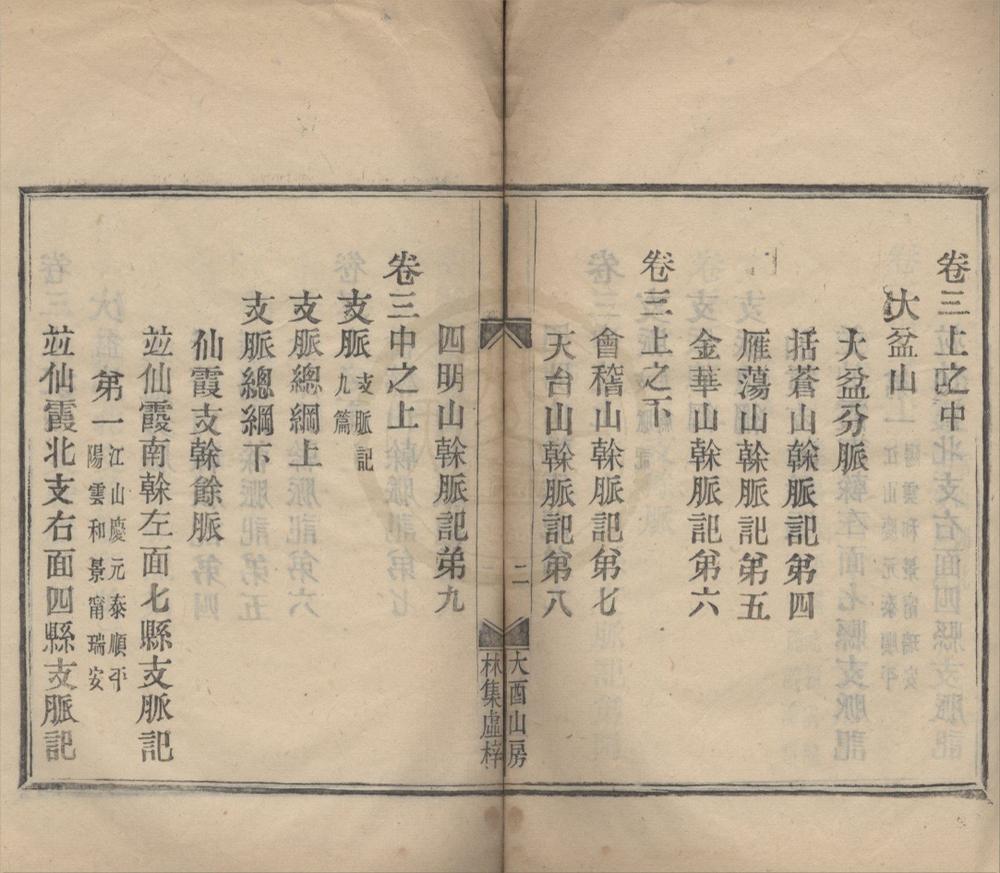 卷三上之中
大盆山
大盆分脈
括蒼山榦脈記第四
雁蕩山榦脈記弟五
金華山榦脈記第六
卷三上之下
會稽山榦脈記弟七
天台山榦脈記弟八
二
大酉山房
林集虛梓
四明山榦脈記弟九
卷三中之上
支脈 支脈記九篇
支脈總綱上
支脈總綱下
仙霞支榦餘脈
竝仙霞南榦左面七縣支脈記
第一 江山慶元泰順平陽雲和景甯瑞安
竝仙霞北支右面四縣支脈記